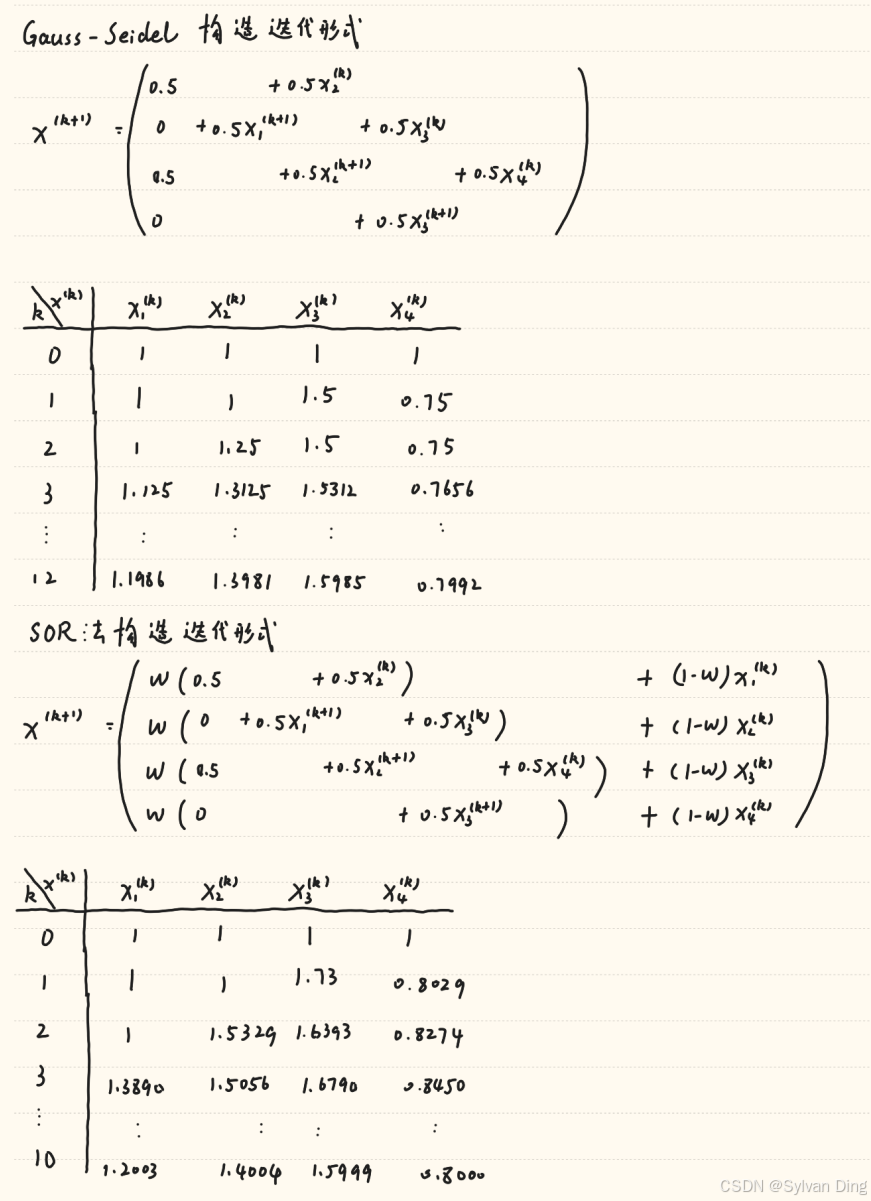 Gauss-Seidel 构造迭代形式
0.5 + 0.5x₂⁽ᵏ⁾
x⁽ᵏ⁺¹⁾ = 0 + 0.5x₁⁽ᵏ⁺¹⁾ + 0.5x₃⁽ᵏ⁾
0.5 + 0.5x₂⁽ᵏ⁺¹⁾ + 0.5x₄⁽ᵏ⁾
0 + 0.5x₃⁽ᵏ⁺¹⁾
k x⁽ᵏ⁾ x₁⁽ᵏ⁾ x₂⁽ᵏ⁾ x₃⁽ᵏ⁾ x₄⁽ᵏ⁾
0 1 1 1 1
1 1 1 1.5 0.75
2 1 1.25 1.5 0.75
3 1.125 1.3125 1.5312 0.7656
⋮ ⋮ ⋮ ⋮ ⋮
12 1.1986 1.3981 1.5985 0.7992
SOR法构造迭代形式
w(0.5 + 0.5x₂⁽ᵏ⁾) + (1-w)x₁⁽ᵏ⁾
x⁽ᵏ⁺¹⁾ = w(0 + 0.5x₁⁽ᵏ⁺¹⁾ + 0.5x₃⁽ᵏ⁾) + (1-w)x₂⁽ᵏ⁾
w(0.5 + 0.5x₂⁽ᵏ⁺¹⁾ + 0.5x₄⁽ᵏ⁾) + (1-w)x₃⁽ᵏ⁾
w(0 + 0.5x₃⁽ᵏ⁺¹⁾) + (1-w)x₄⁽ᵏ⁾
k x⁽ᵏ⁾ x₁⁽ᵏ⁾ x₂⁽ᵏ⁾ x₃⁽ᵏ⁾ x₄⁽ᵏ⁾
0 1 1 1 1
1 1 1 1.73 0.8029
2 1 1.5329 1.6393 0.8274
3 1.3890 1.5056 1.6790 0.8450
⋮ ⋮ ⋮ ⋮ ⋮
10 1.2003 1.4004 1.5999 0.8000
CSDN @Sylvan Ding